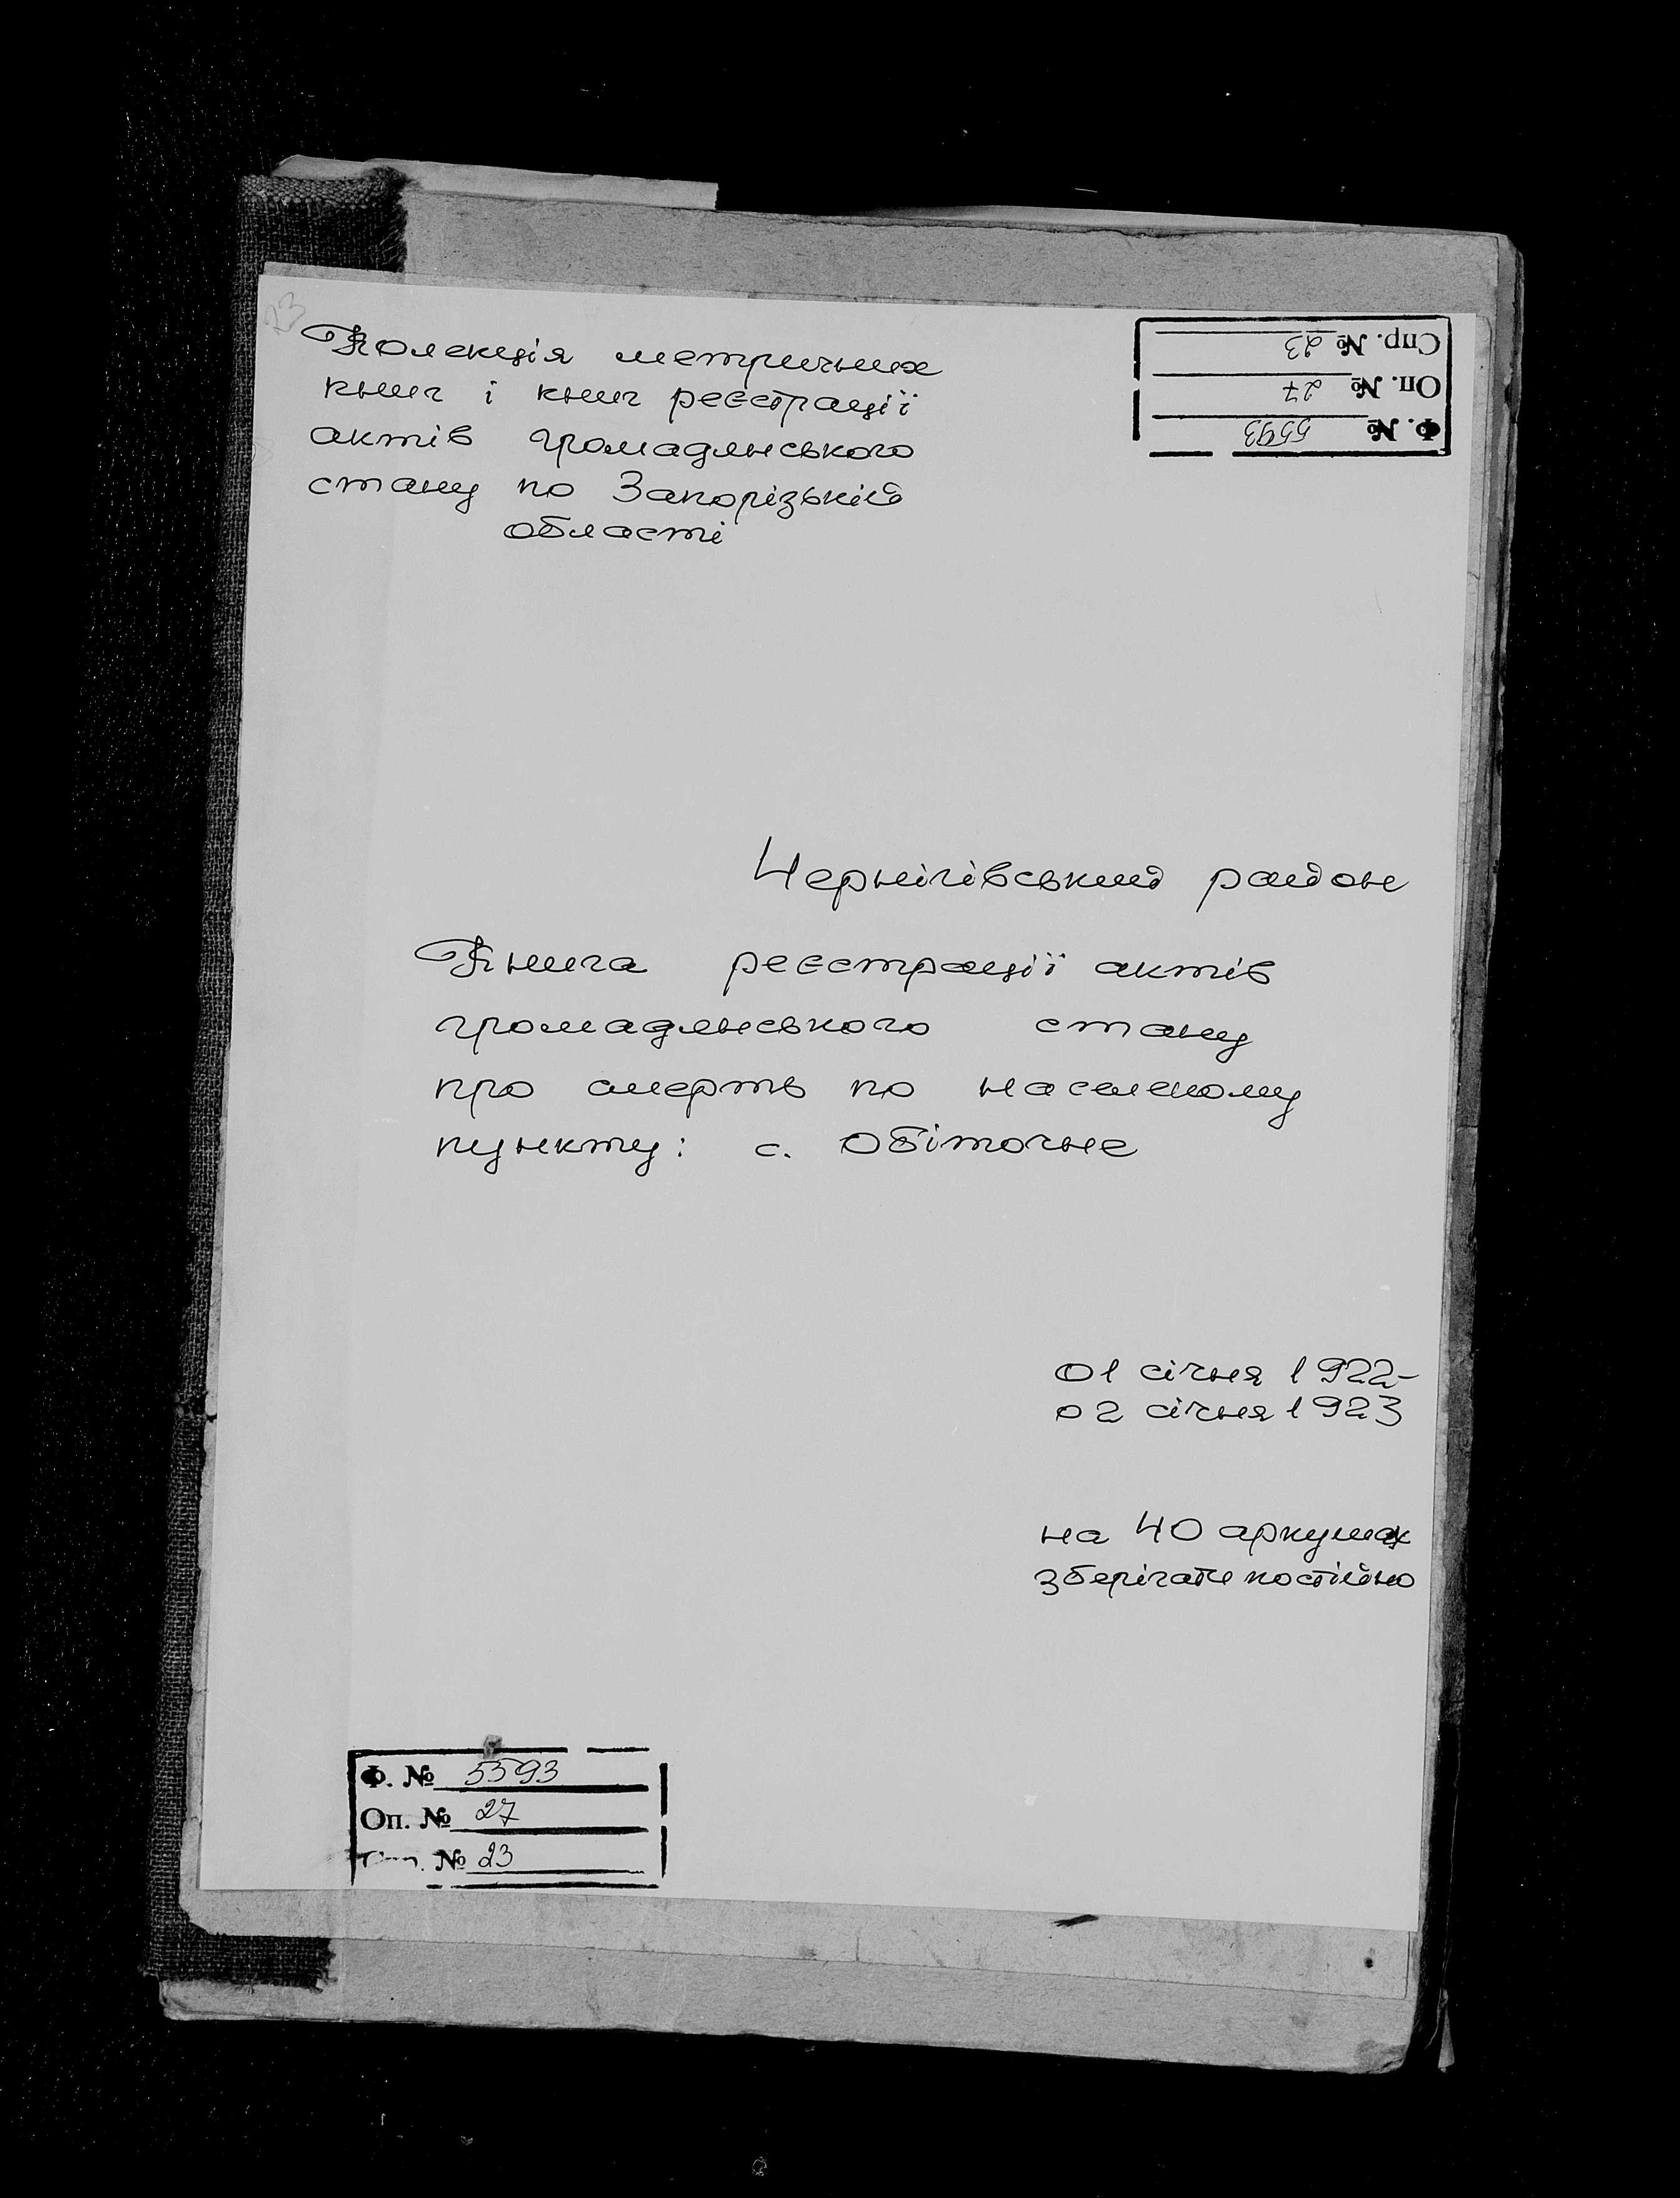 23
Колекція метричних
книг і книг реєстрації
актів громадянського
стану по Запорізькій
області
Спр. № 23
Оп. № 27
Ф. № 5593
Чернігівський район
Книга реєстрації актів
громадянського стану
про смерть по населеному
пункту: с. Обіточне
01 січня 1922-
02 січня 1923
на 40 аркушах
зберігати постійно
Ф. № 5593
Оп. № 27
№ 23